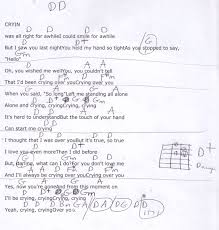 D D
CRYIN
D D D D
was all right for awhileI could smile for awhile
D D+ G Gm
But I saw you last nightYou held my hand so tightAs you stopped to say,
"Hello"
D A A
Oh, you wished me wellYou, you couldn't tell
D D F#m
That I'd been cryingOver youCryingOver you
When you said, "So long"Left me standing all alone
D D+ G Gm
Alone and crying, cryingCrying, crying
D A
It's hard to understandBut the touch of your hand
D D
Can start me crying
D D D D
I thought that I was over youBut it's true, so true
D D+
I love you even moreThan I did before
Gm D A A
But, darling, what can I do?For you don't love me
D F#m F#m
And I'll always be crying over youCryingOver you
G A G A
Yes, now you're goneAnd from this moment on
D D+ G Gm
I'll be crying, cryingCrying, crying
D A D G D D
Yeah, crying, cryingOver you